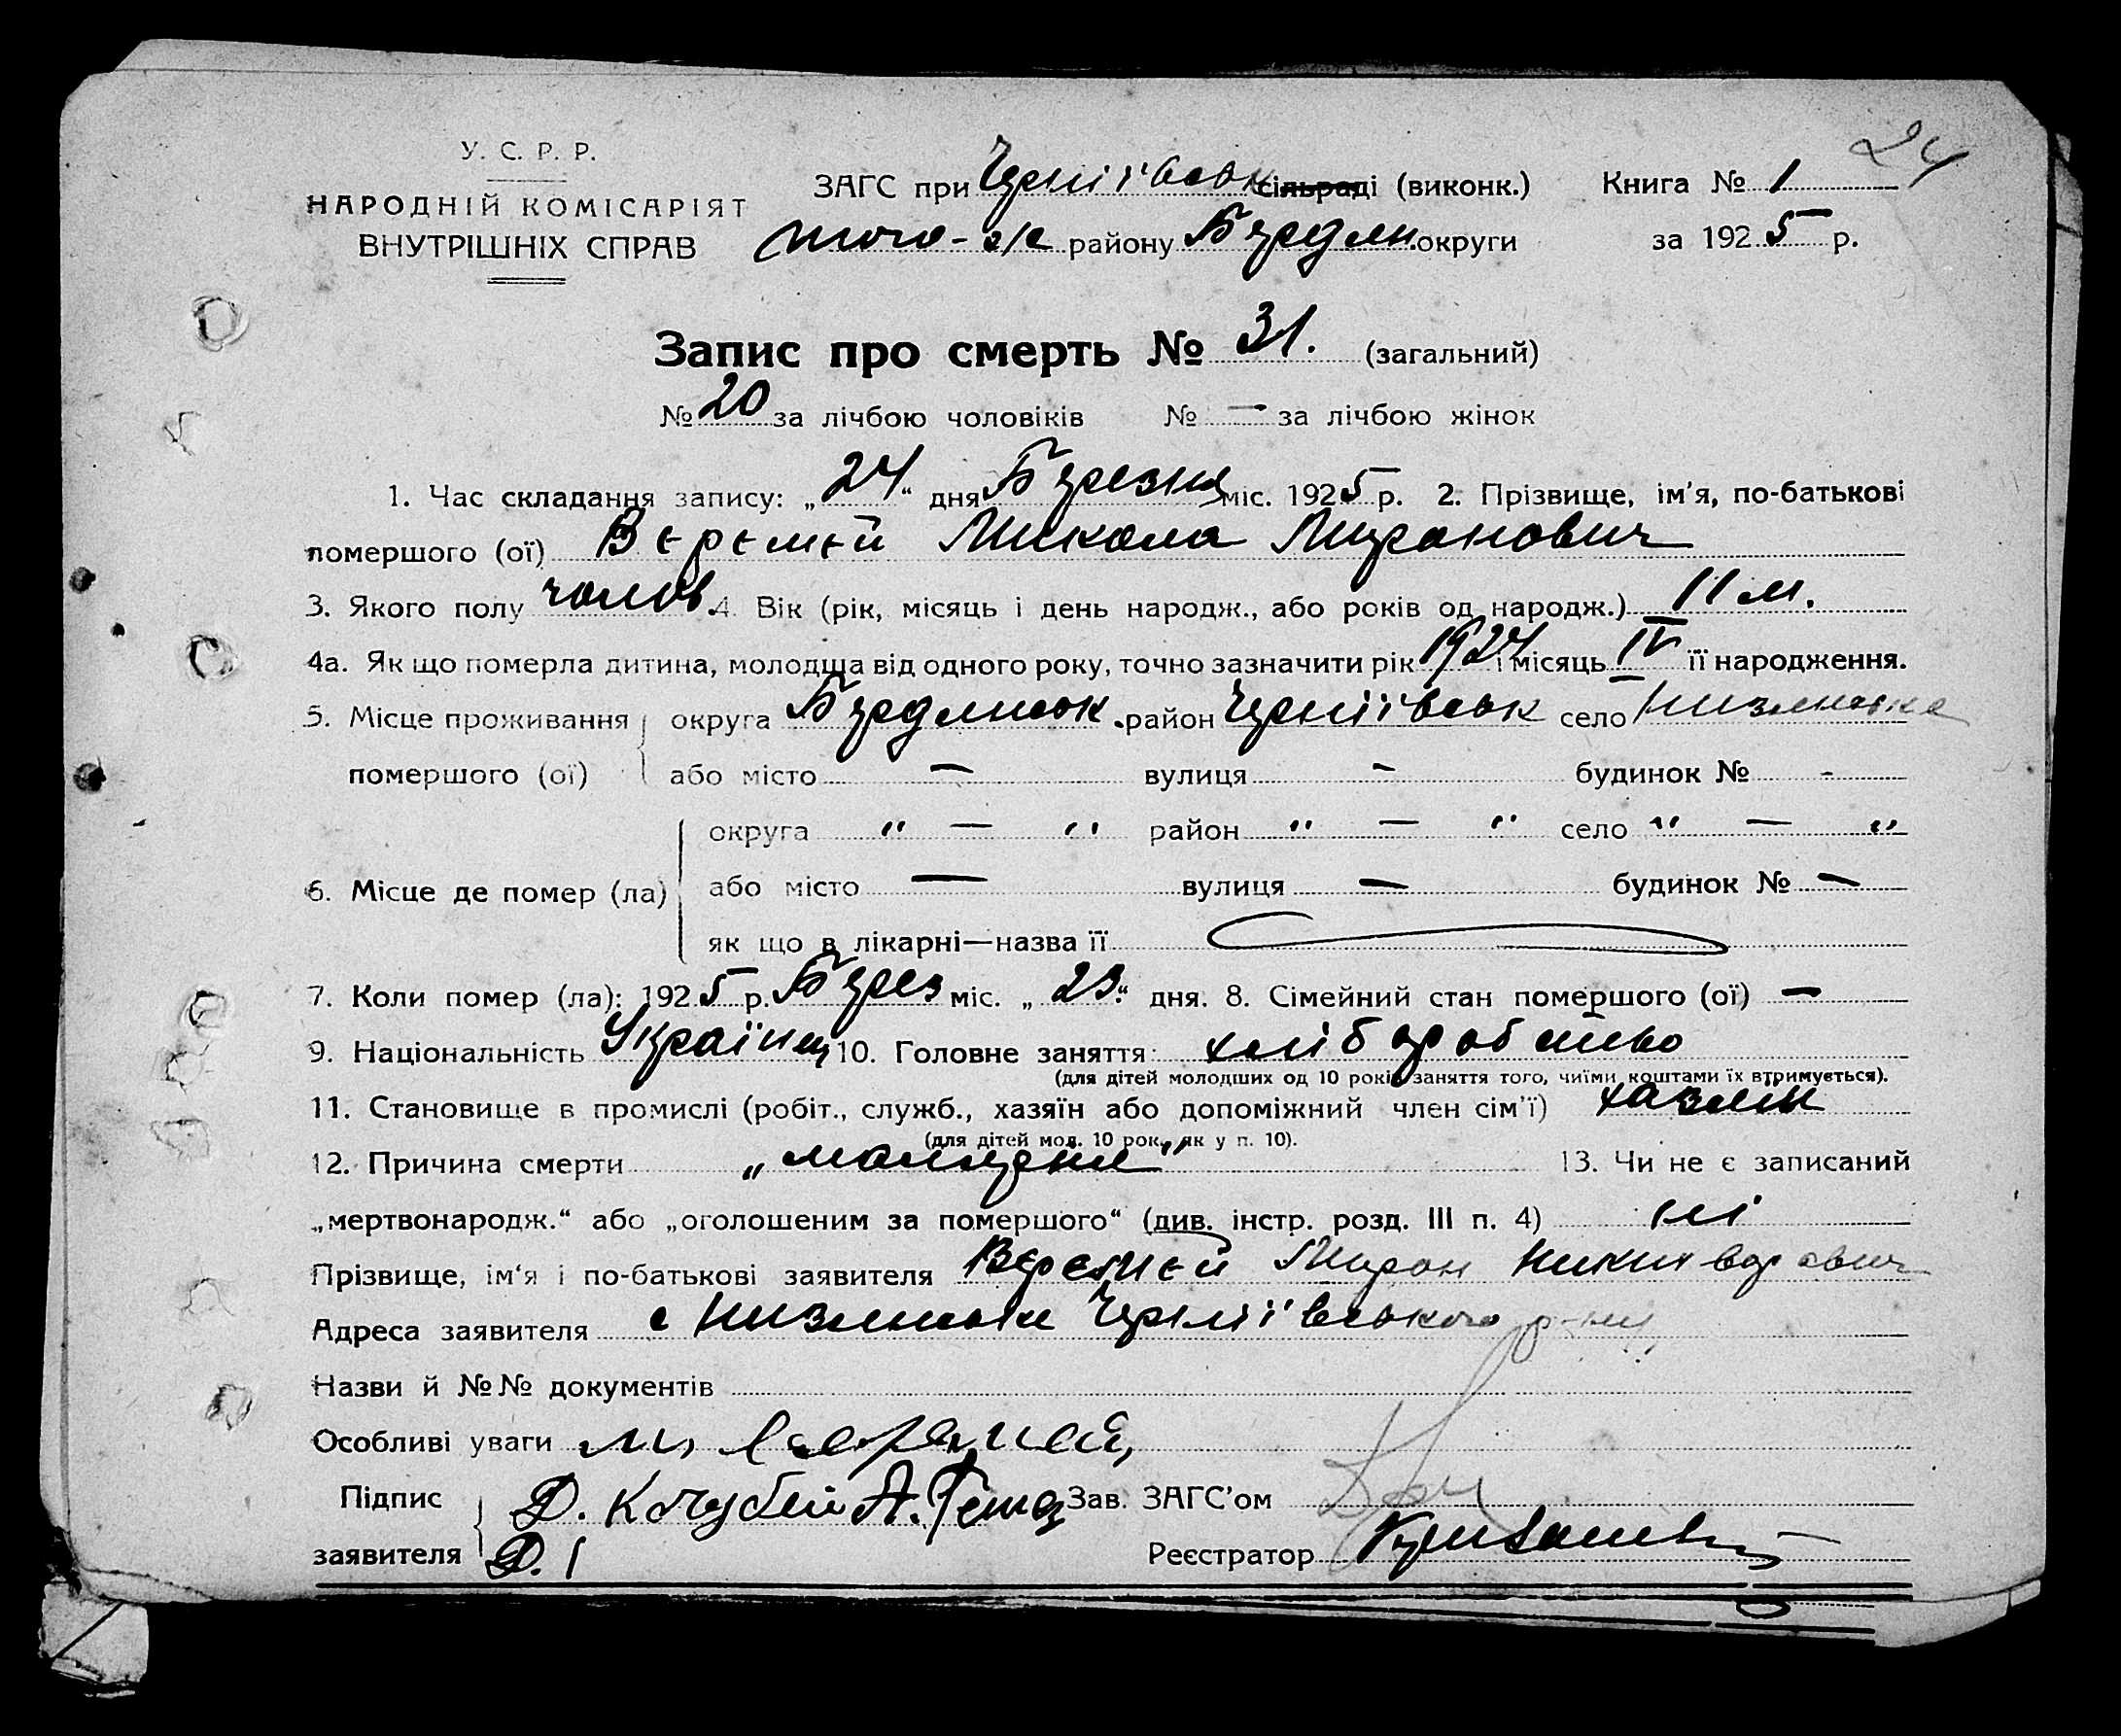 24
У. С. Р. Р.
НАРОДНІЙ КОМІСАРІЯТ
ВНУТРІШНІХ СПРАВ
ЗАГС при Черніївськ сільраді (виконк.) Книга № 1
того-ж району Бердян. округи за 1925 р.
Запис про смерть № 31. (загальний)
№ 20 за лічбою чоловіків № — за лічбою жінок
1. Час складання запису: „24“ дня Березня міс. 1925 р. 2. Прізвище, ім'я, по-батькові
помершого (ої) Веремей Микола Миронович
3. Якого полу чолов. 4. Вік (рік, місяць і день народж., або років од народж.) 11 м.
4а. Як що померла дитина, молодша від одного року, точно зазначити рік 1924 і місяць IV її народження.
5. Місце проживання округа Бердянськ. район Черніївськ село Низянське
помершого (ої) або місто — вулиця — будинок № -
округа " — " район " — " село " — "
6. Місце де помер (ла) або місто — вулиця — будинок № —
як що в лікарні—назва її
7. Коли помер (ла): 1925 р. Берез міс. „23“ дня. 8. Сімейний стан помершого (ої) —
9. Національність Українец 10. Головне заняття: хліборобство
(для дітей молодших од 10 років заняття того, чиїми коштами їх втримується).
11. Становище в промислі (робіт., служб., хазяїн або допоміжний член сім'ї) хазяїн
(для дітей мол. 10 рок., як у п. 10).
12. Причина смерти 13. Чи не є записаний
„мертвонародж.“ або „оголошеним за помершого“ (див. інстр. розд. III п. 4) ні
Прізвище, ім'я і по-батькові заявителя Веремей Мирон
Адреса заявителя с Низянське Черніївського р-ну
Назви й №№ документів
Особливі уваги
Підпис Д. Кочубей А. Зав. ЗАГС'ом
заявителя Д. Реєстратор